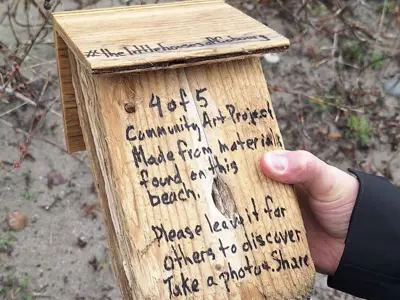 #thelittlehousesofCobourg
4 of 5
Community Art Project
Made from material
found on this
beach.
Please leave it for
others to discover
Take a photo & Share